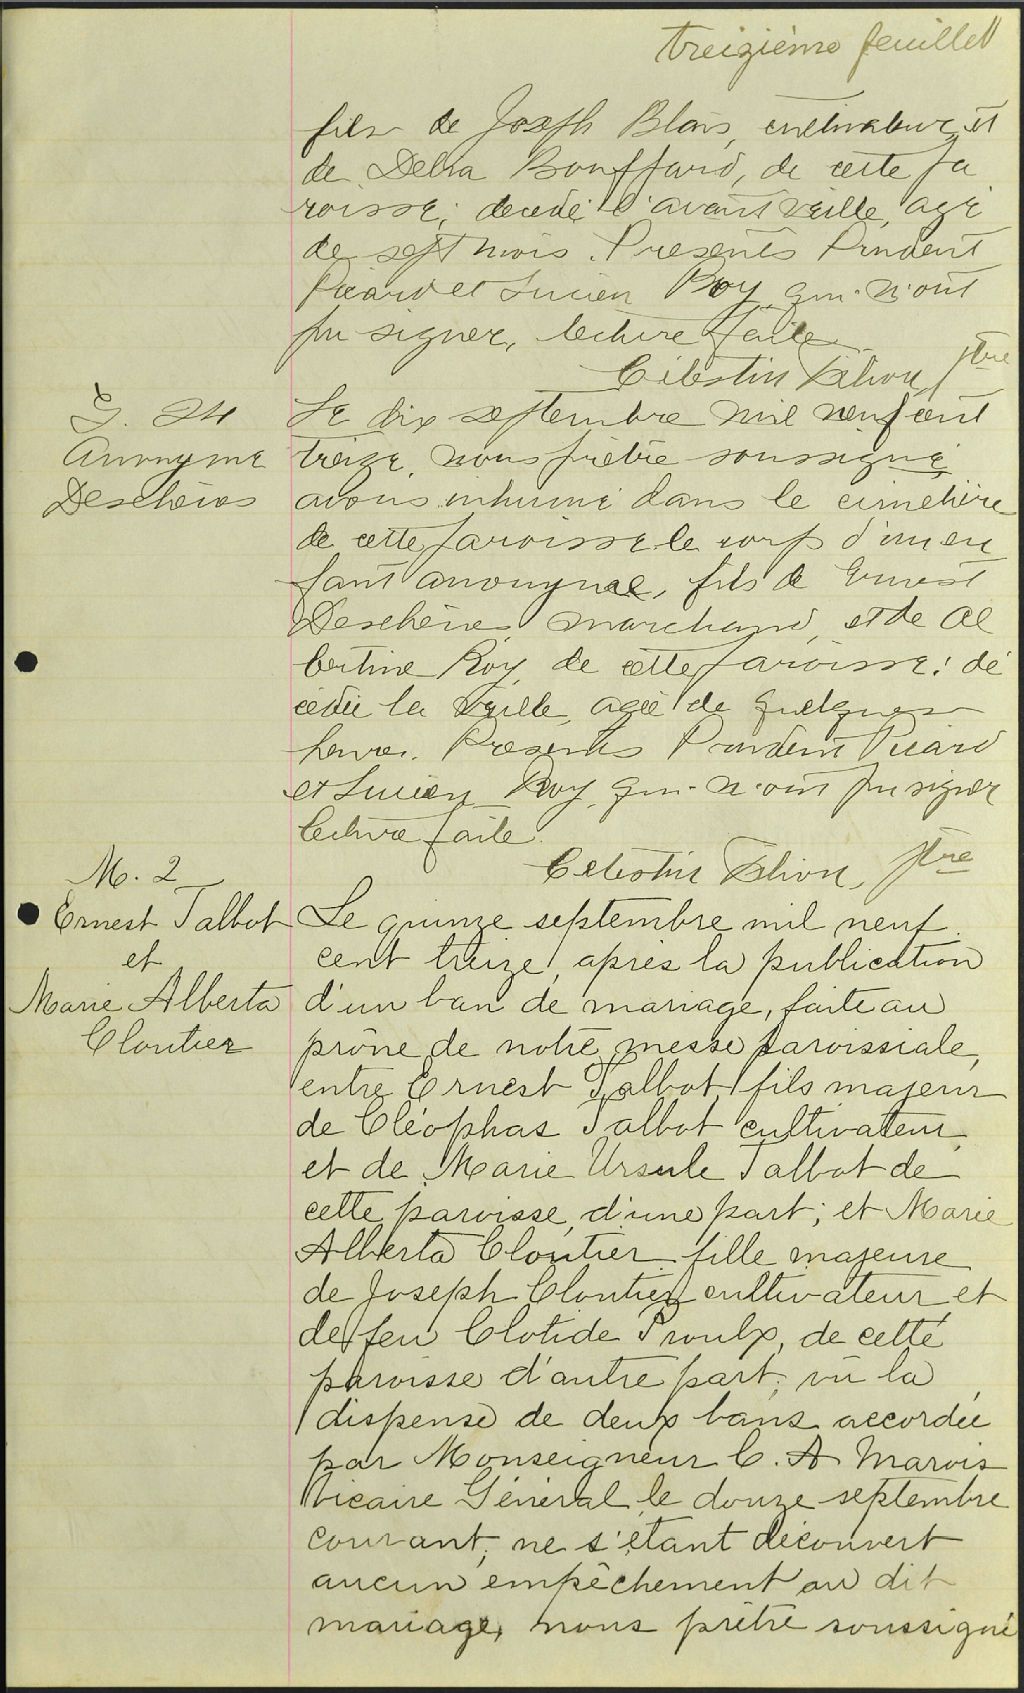 treizième feuillet
fils de Joseph Blais, cultivateur, et
de Délia Bouffard, de cette pa
roisse; décédé l'avant veille, agé
de sept mois. Presents Prudent
Picard et Lucien Roy, qui n'ont
pu signer, lecture faite.
Célestin ptre
S. 24
Anonyme
Deschênes
Le dix septembre mil neuf cent
treize, nous prêtre soussigné
avons inhumé dans le cimetière
de cette paroisse le corps d'un en
fant anonyme, fils de Ernest
Deschênes, marchand, et de Al
bertine Roy, de cette paroisse: dé
cédée la veille, agée de quelques
heures. Presents Prudent Picard
et Lucien Roy, qui n'ont pu signer
lecture faite.
Celestin ptre
M. 2
Ernest Talbot
et
Marie Alberta
Cloutier
Le quinze septembre mil neuf
cent treize, après la publication
d'un ban de mariage, faite au
prône de notre messe paroissiale,
entre Ernest Talbot, fils majeur
de Cléophas Talbot cultivateur,
et de Marie Ursule Talbot de
cette paroisse, d'une part; et Marie
Alberta Cloutier fille majeure
de Joseph Cloutier, cultivateur, et
de feu Clotide Proulx, de cette
paroisse d'autre part; vu la
dispense de deux bans accordée
par Monseigneur C. A Marois
Vicaire Général, le douze septembre
courant; ne s'étant découvert
aucun empêchement au dit
mariage, nous prêtre soussigné